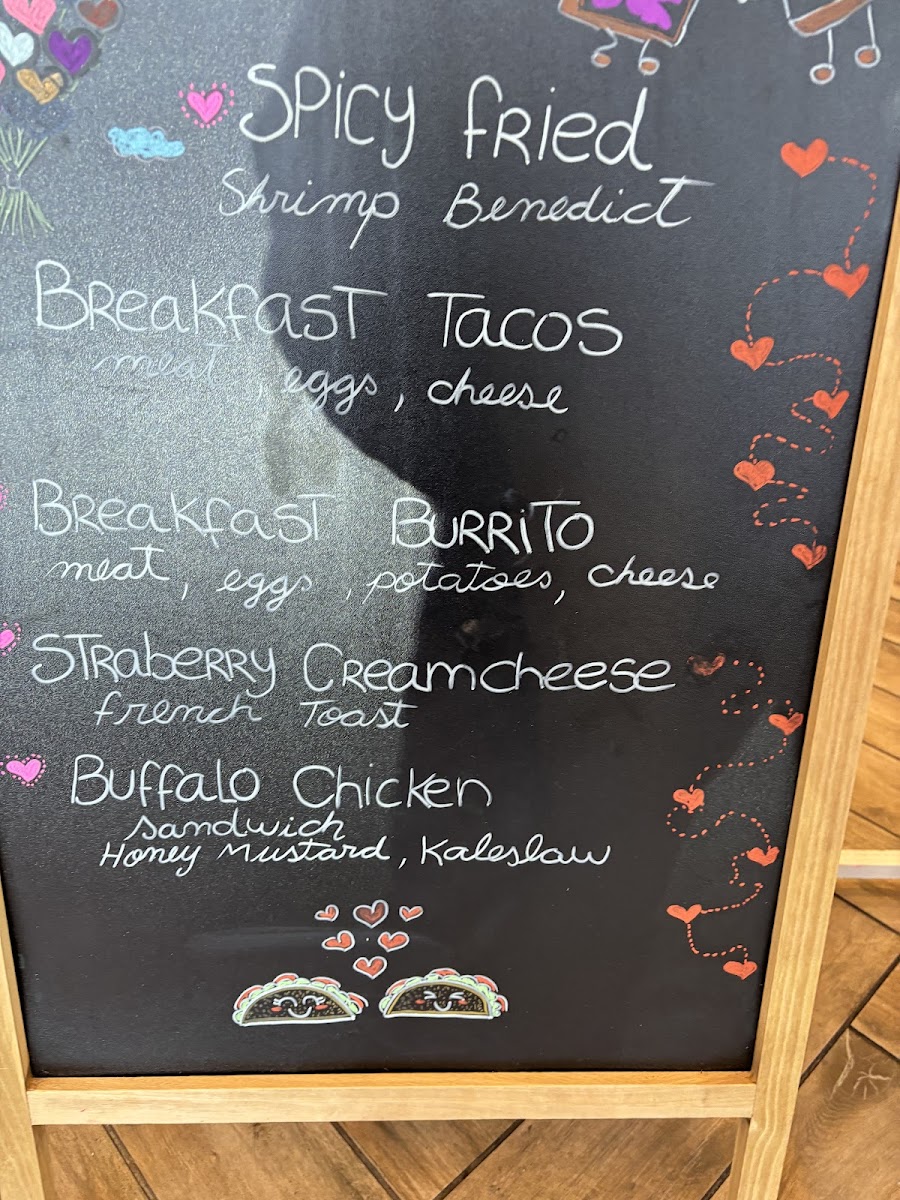 Spicy Fried
Shrimp Benedict
Breakfast Tacos
meat, eggs, cheese
Breakfast Burrito
meat, eggs, potatoes, cheese
Straberry Creamcheese
french Toast
Buffalo Chicken
sandwich
Honey Mustard, Kaleslaw